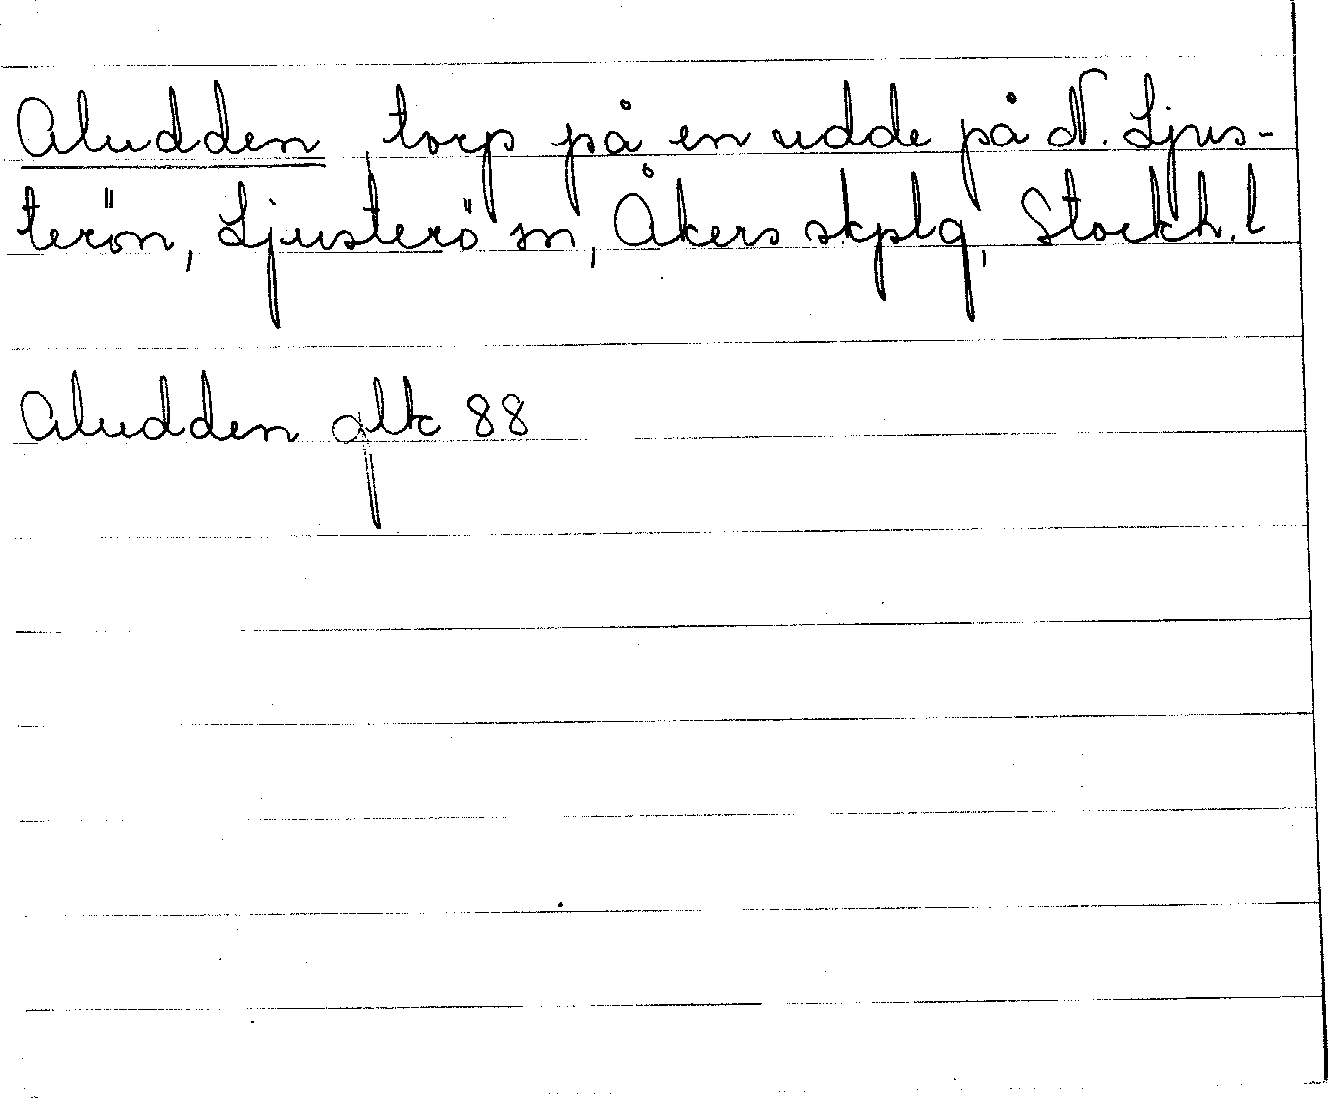 Aludden, torp på en udde på N. Ljus-
terön, Ljusterö sn, Åkers skplg, Stockh. l
Aludden glk 88